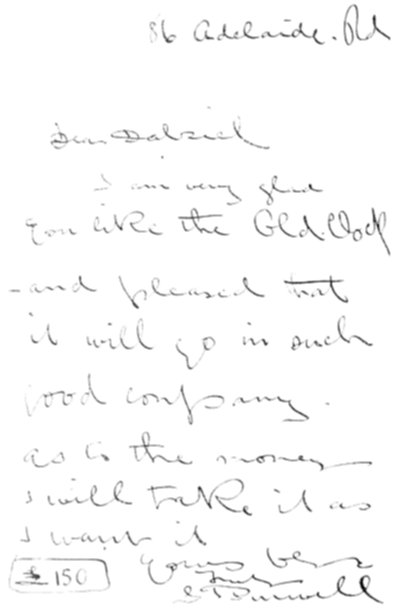 86 Adelaide. Rd
Dear Dalziel
I am very glad
you like the Old. Clock
- and pleased that
it will go in such
good company.
as to the money
I will take it as
I want it
Yours
£150